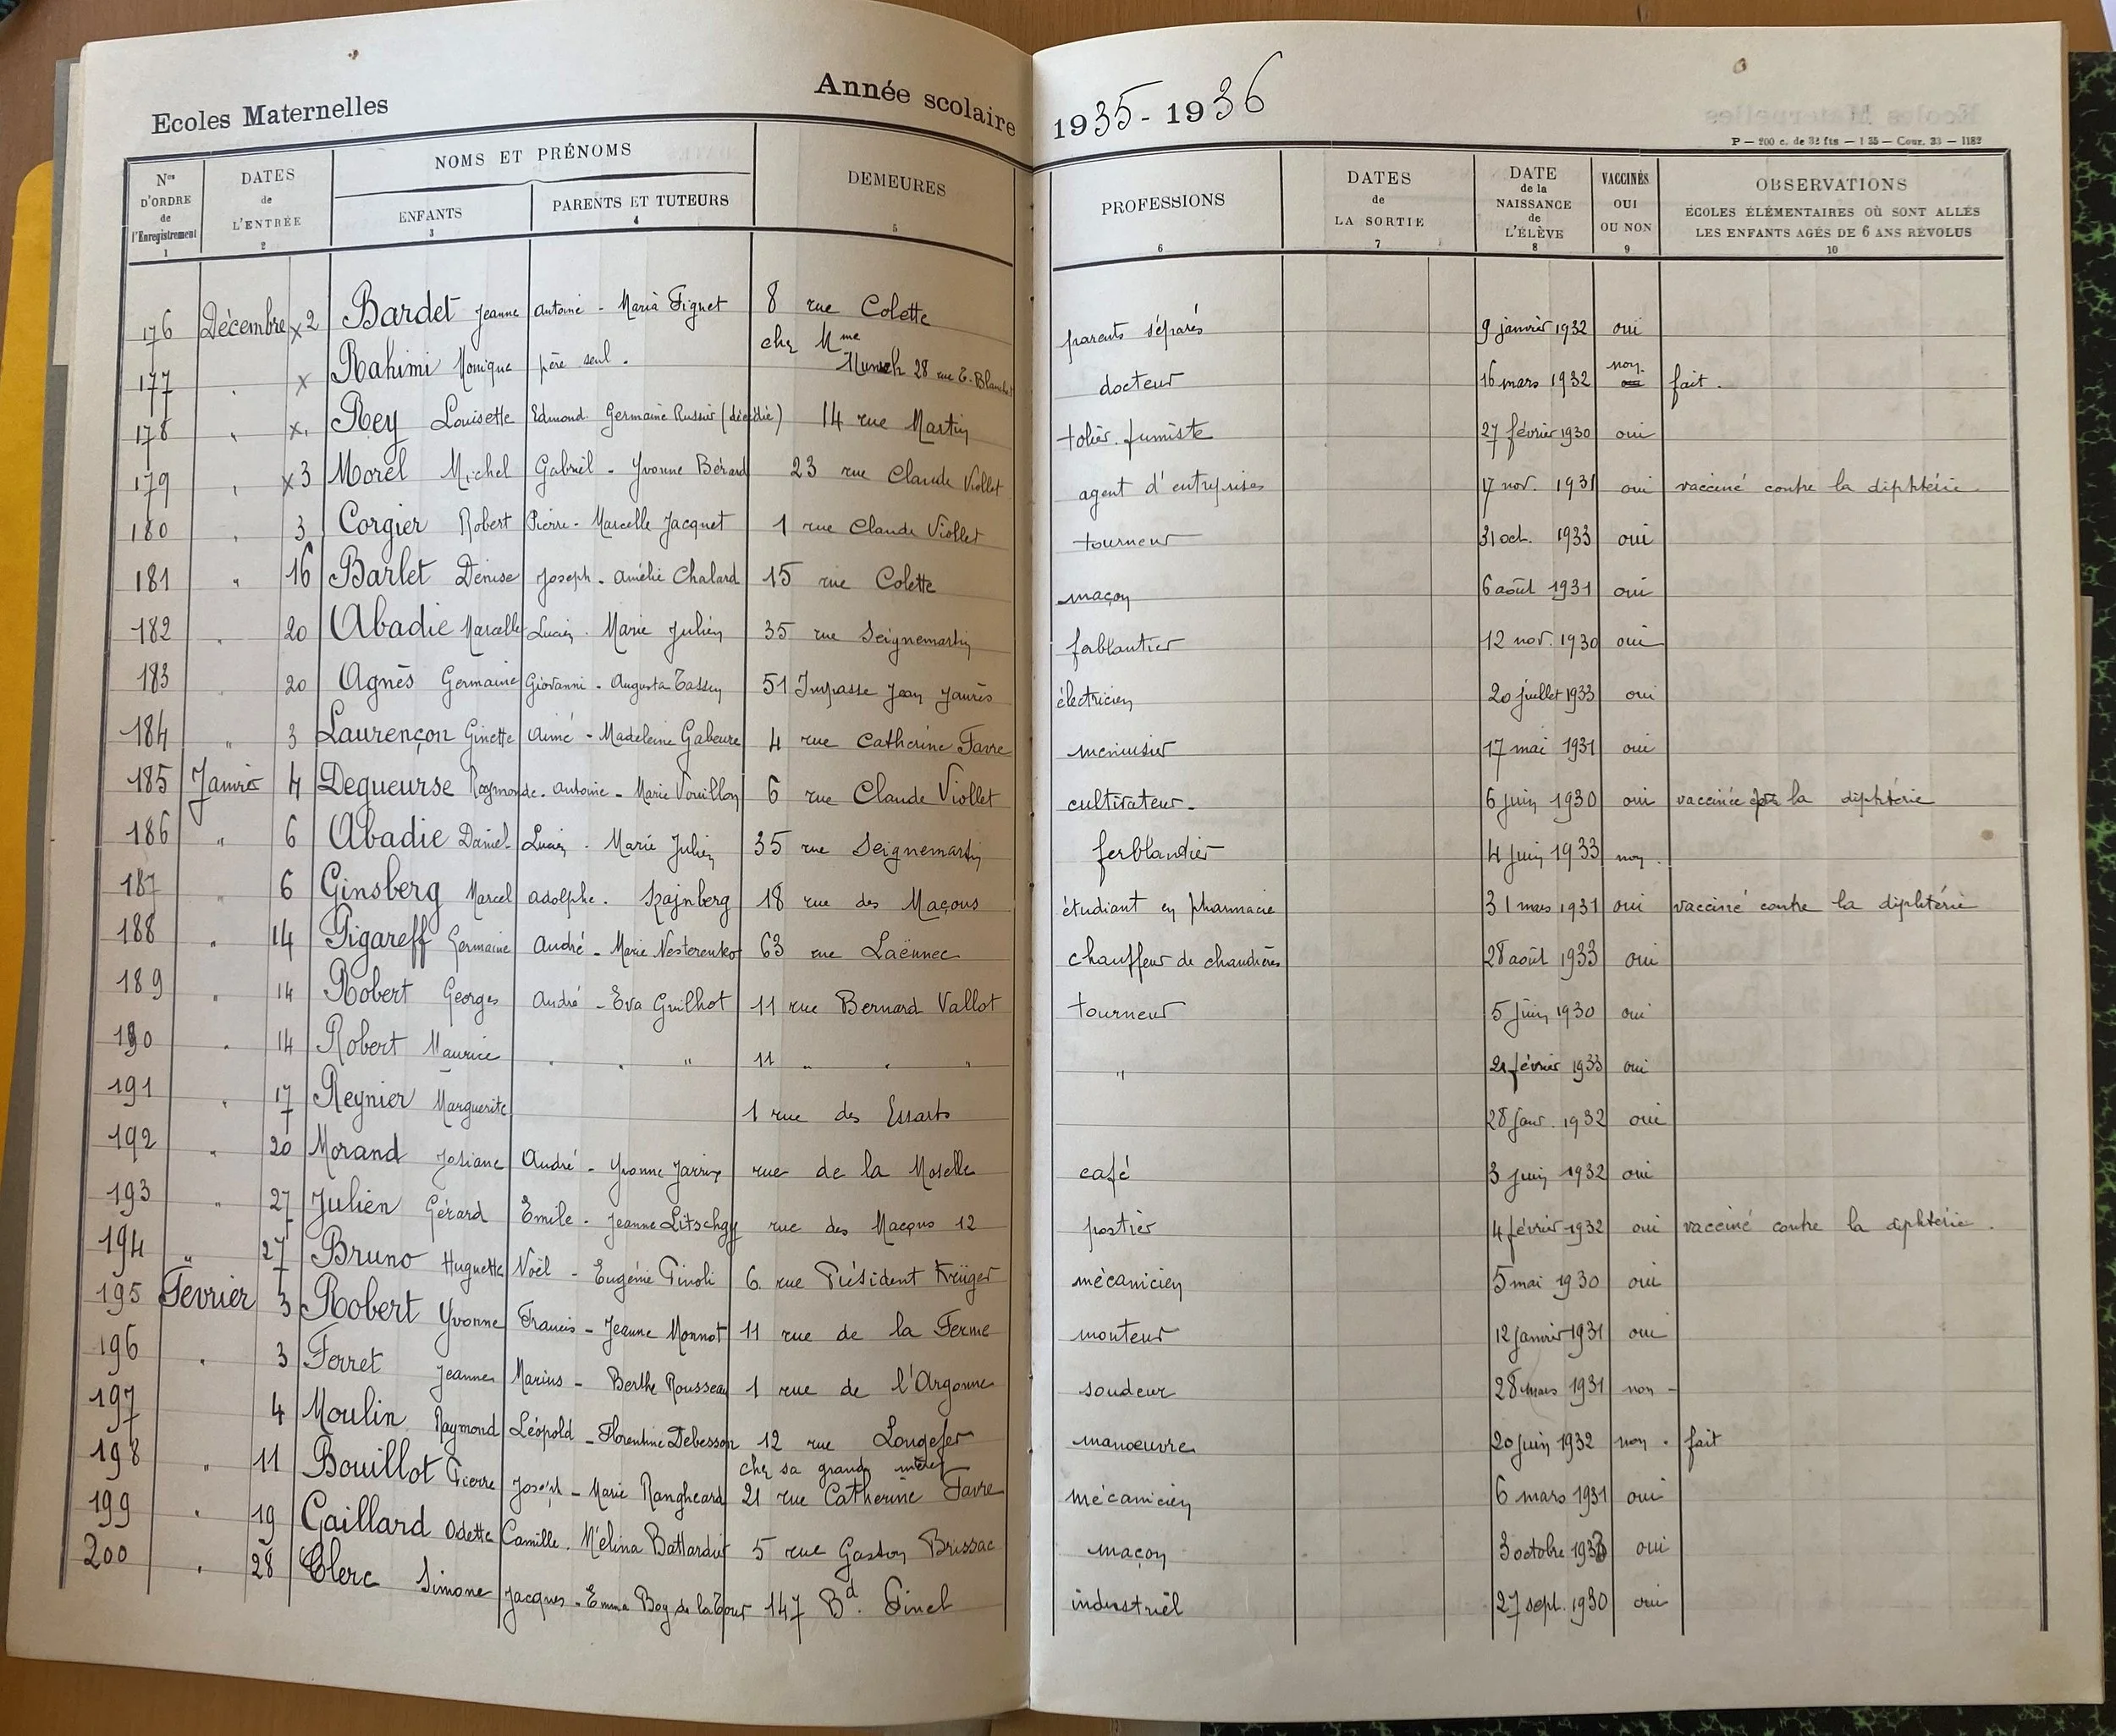 Ecoles Maternelles Année scolaire 1935-1936
P — 200 c. de 32 fts — 1 35 — Cour. 33 — 1182
Nos D'ORDRE de l'Enregistrement 1 | DATES de L'ENTRÉE 2 | NOMS ET PRÉNOMS | ENFANTS 3 | PARENTS ET TUTEURS 4 | DEMEURES 5 | PROFESSIONS 6 | DATES de LA SORTIE 7 | DATE de la NAISSANCE de L'ÉLÈVE 8 | VACCINÉS OUI OU NON 9 | OBSERVATIONS ÉCOLES ÉLÉMENTAIRES OÙ SONT ALLÉS LES ENFANTS AGÉS DE 6 ANS RÉVOLUS 10
176 Décembre x 2 Bardet Jeanne Antoine - Maria Pignet 8 rue Colette parents séparés 9 janvier 1932 oui
177 . x Rahimi Monique père seul. chez Mme Munsch 28 rue E. Blanchet docteur 16 mars 1932 non fait.
178 " x. Rey Louisette Edmond Germaine Russier (décédée) 14 rue Martin tolier. fumiste 27 février 1930 oui
179 " x3 Morel Michel Gabriel - Yvonne Bérard 23 rue Claude Viollet agent d'entreprises 17 nov. 1931 oui vacciné contre la diphtérie
180 " 3 Corgier Robert Pierre - Marcelle Jacquet 1 rue Claude Viollet tourneur 31 oct. 1933 oui
181 " 16 Barlet Denise Joseph - Amélie Chalard 15 rue Colette maçon 6 août 1931 oui
182 " 20 Abadie Marcelle Lucien - Marie Julien 35 rue Seignemartin ferblantier 12 nov. 1930 oui
183 " 20 Agnès Germaine Giovanni - Augusta Tassin 51 Impasse Jean Jaurès électricien 20 juillet 1933 oui
184 " 3 Laurençon Ginette Aimé - Madeleine Gabeure 4 rue Catherine Favre menuisier 17 mai 1931 oui
185 Janvier 4 Degueurse Raymonde - Antoine - Marie Vouillon 6 rue Claude Viollet cultivateur - 6 juin 1930 oui vaccinée la diphtérie
186 " 6 Abadie Daniel Lucien - Marie Julien 35 rue Seignemartin ferblandier 4 juin 1933 non.
187 " 6 Ginsberg Marcel Adolphe. Szajnberg 18 rue des Maçons étudiant en pharmacie 31 mars 1931 oui vacciné contre la diphtérie
188 " 14 Pigareff Germaine André - Marie Nesterenko 63 rue Laënnec chauffeur de chaudières 28 août 1933 oui
189 " 14 Robert Georges André - Eva Guilhot 11 rue Bernard Vallot tourneur 5 juin 1930 oui
190 " 14 Robert Maurice " " " 11 " " " " février 1933 oui
191 " 17 Reynier Marguerite 1 rue des Essarts 28 janv. 1932 oui
192 " 20 Morand Josiane André - Yvonne Jarrix rue de la Moselle café 3 juin 1932 oui
193 " 27 Julien Gérard Emile - Jeanne Litschgy rue des Maçons 12 postier 4 février 1932 oui vacciné contre la diphtérie.
194 " 27 Bruno Huguette Noël - Eugénie Pinoli 6 rue Président Krüger mécanicien 5 mai 1930 oui
195 Fevrier 3 Robert Yvonne Francis - Jeanne Monnot 11 rue de la Ferme monteur 12 janvier 1931 oui
196 " 3 Ferret Jeanne Marius - Berthe Rousseau 1 rue de l'Argonne soudeur 28 mars 1931 non -
197 4 Moulin Raymond Léopold - Florentine Debesson 12 rue Longefer manœuvre 20 juin 1932 non. fait
198 " 11 Bouillot Pierre Joseph - Marie Rangheard chez sa grand mère 21 rue Catherine Favre mécanicien 6 mars 1931 oui
199 " 19 Gaillard Odette Camille - Mélina Battardier 5 rue Gaston Brissac maçon 3 octobre oui
200 " 28 Clerc Simone Jacques - Emma Boy de la Tour 147 Bd Pinel industriel 27 sept. 1930 oui